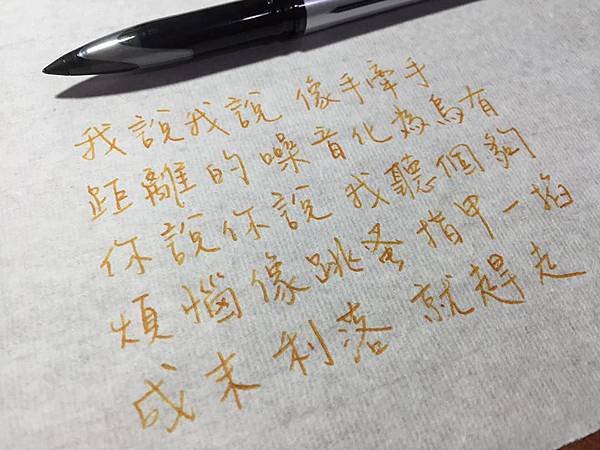 我說我說 像手牽手
距離的噪音化為烏有
你說你說 我聽個夠
煩惱像跳蚤 指甲一掐
成末 利落 就趕走